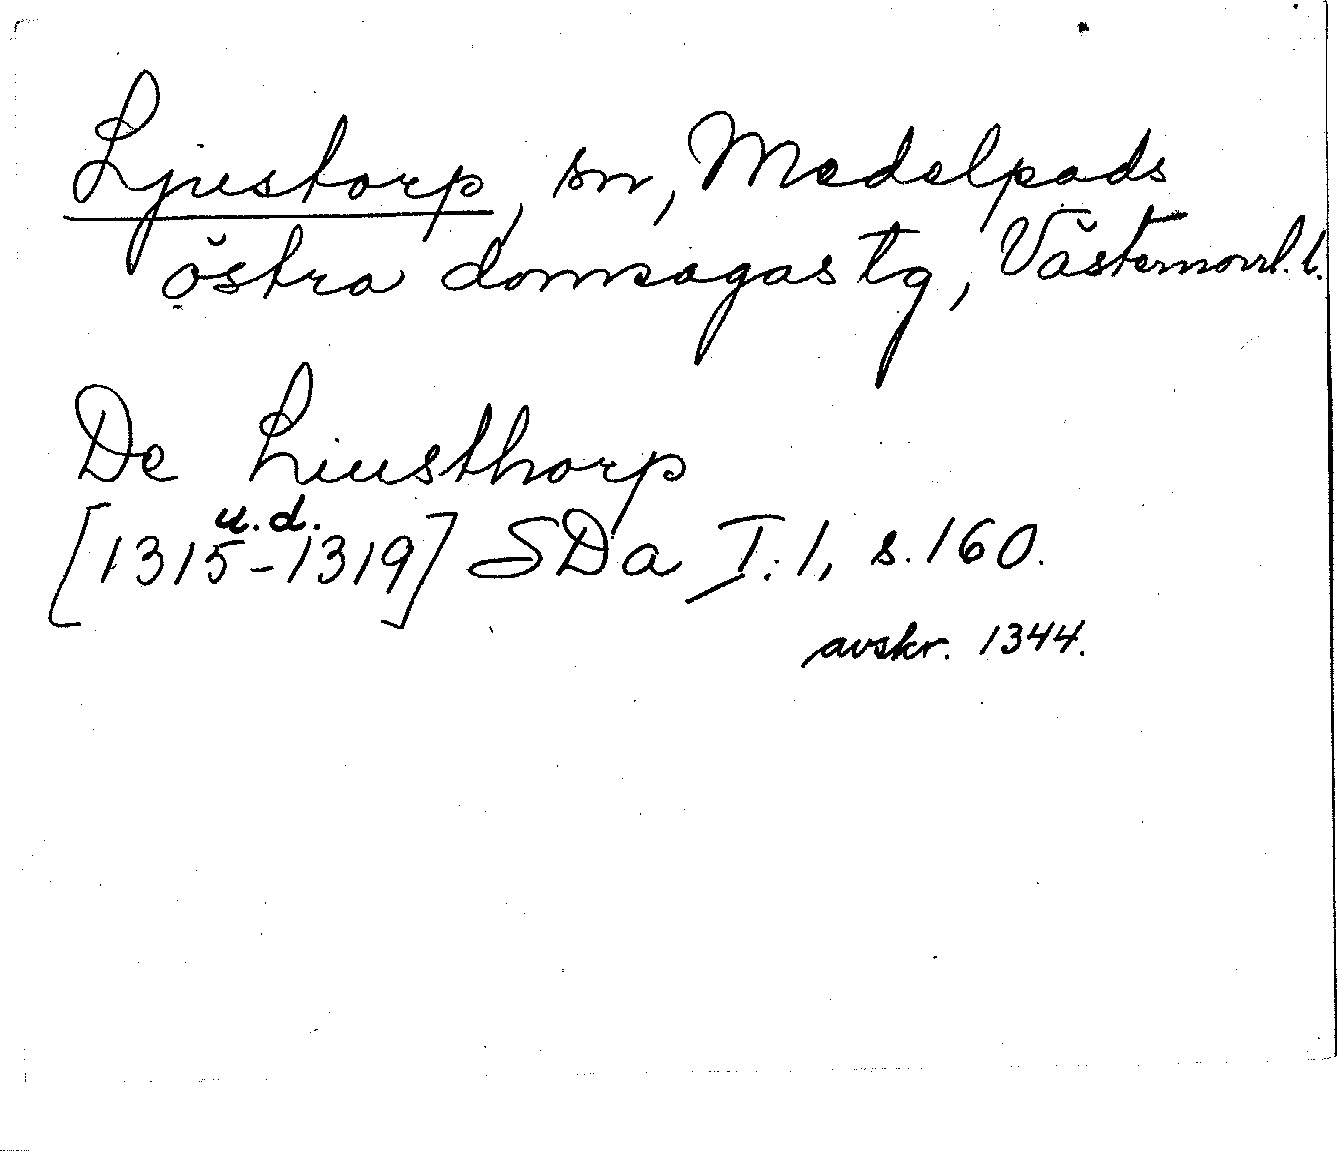 Ljustorp, sn, Medelpads
östra domsagas tg, Västernorrl. l.
De Liusthorp
u.d.
[1315-1319] SDa I:1, s. 160.
avskr. 1344.